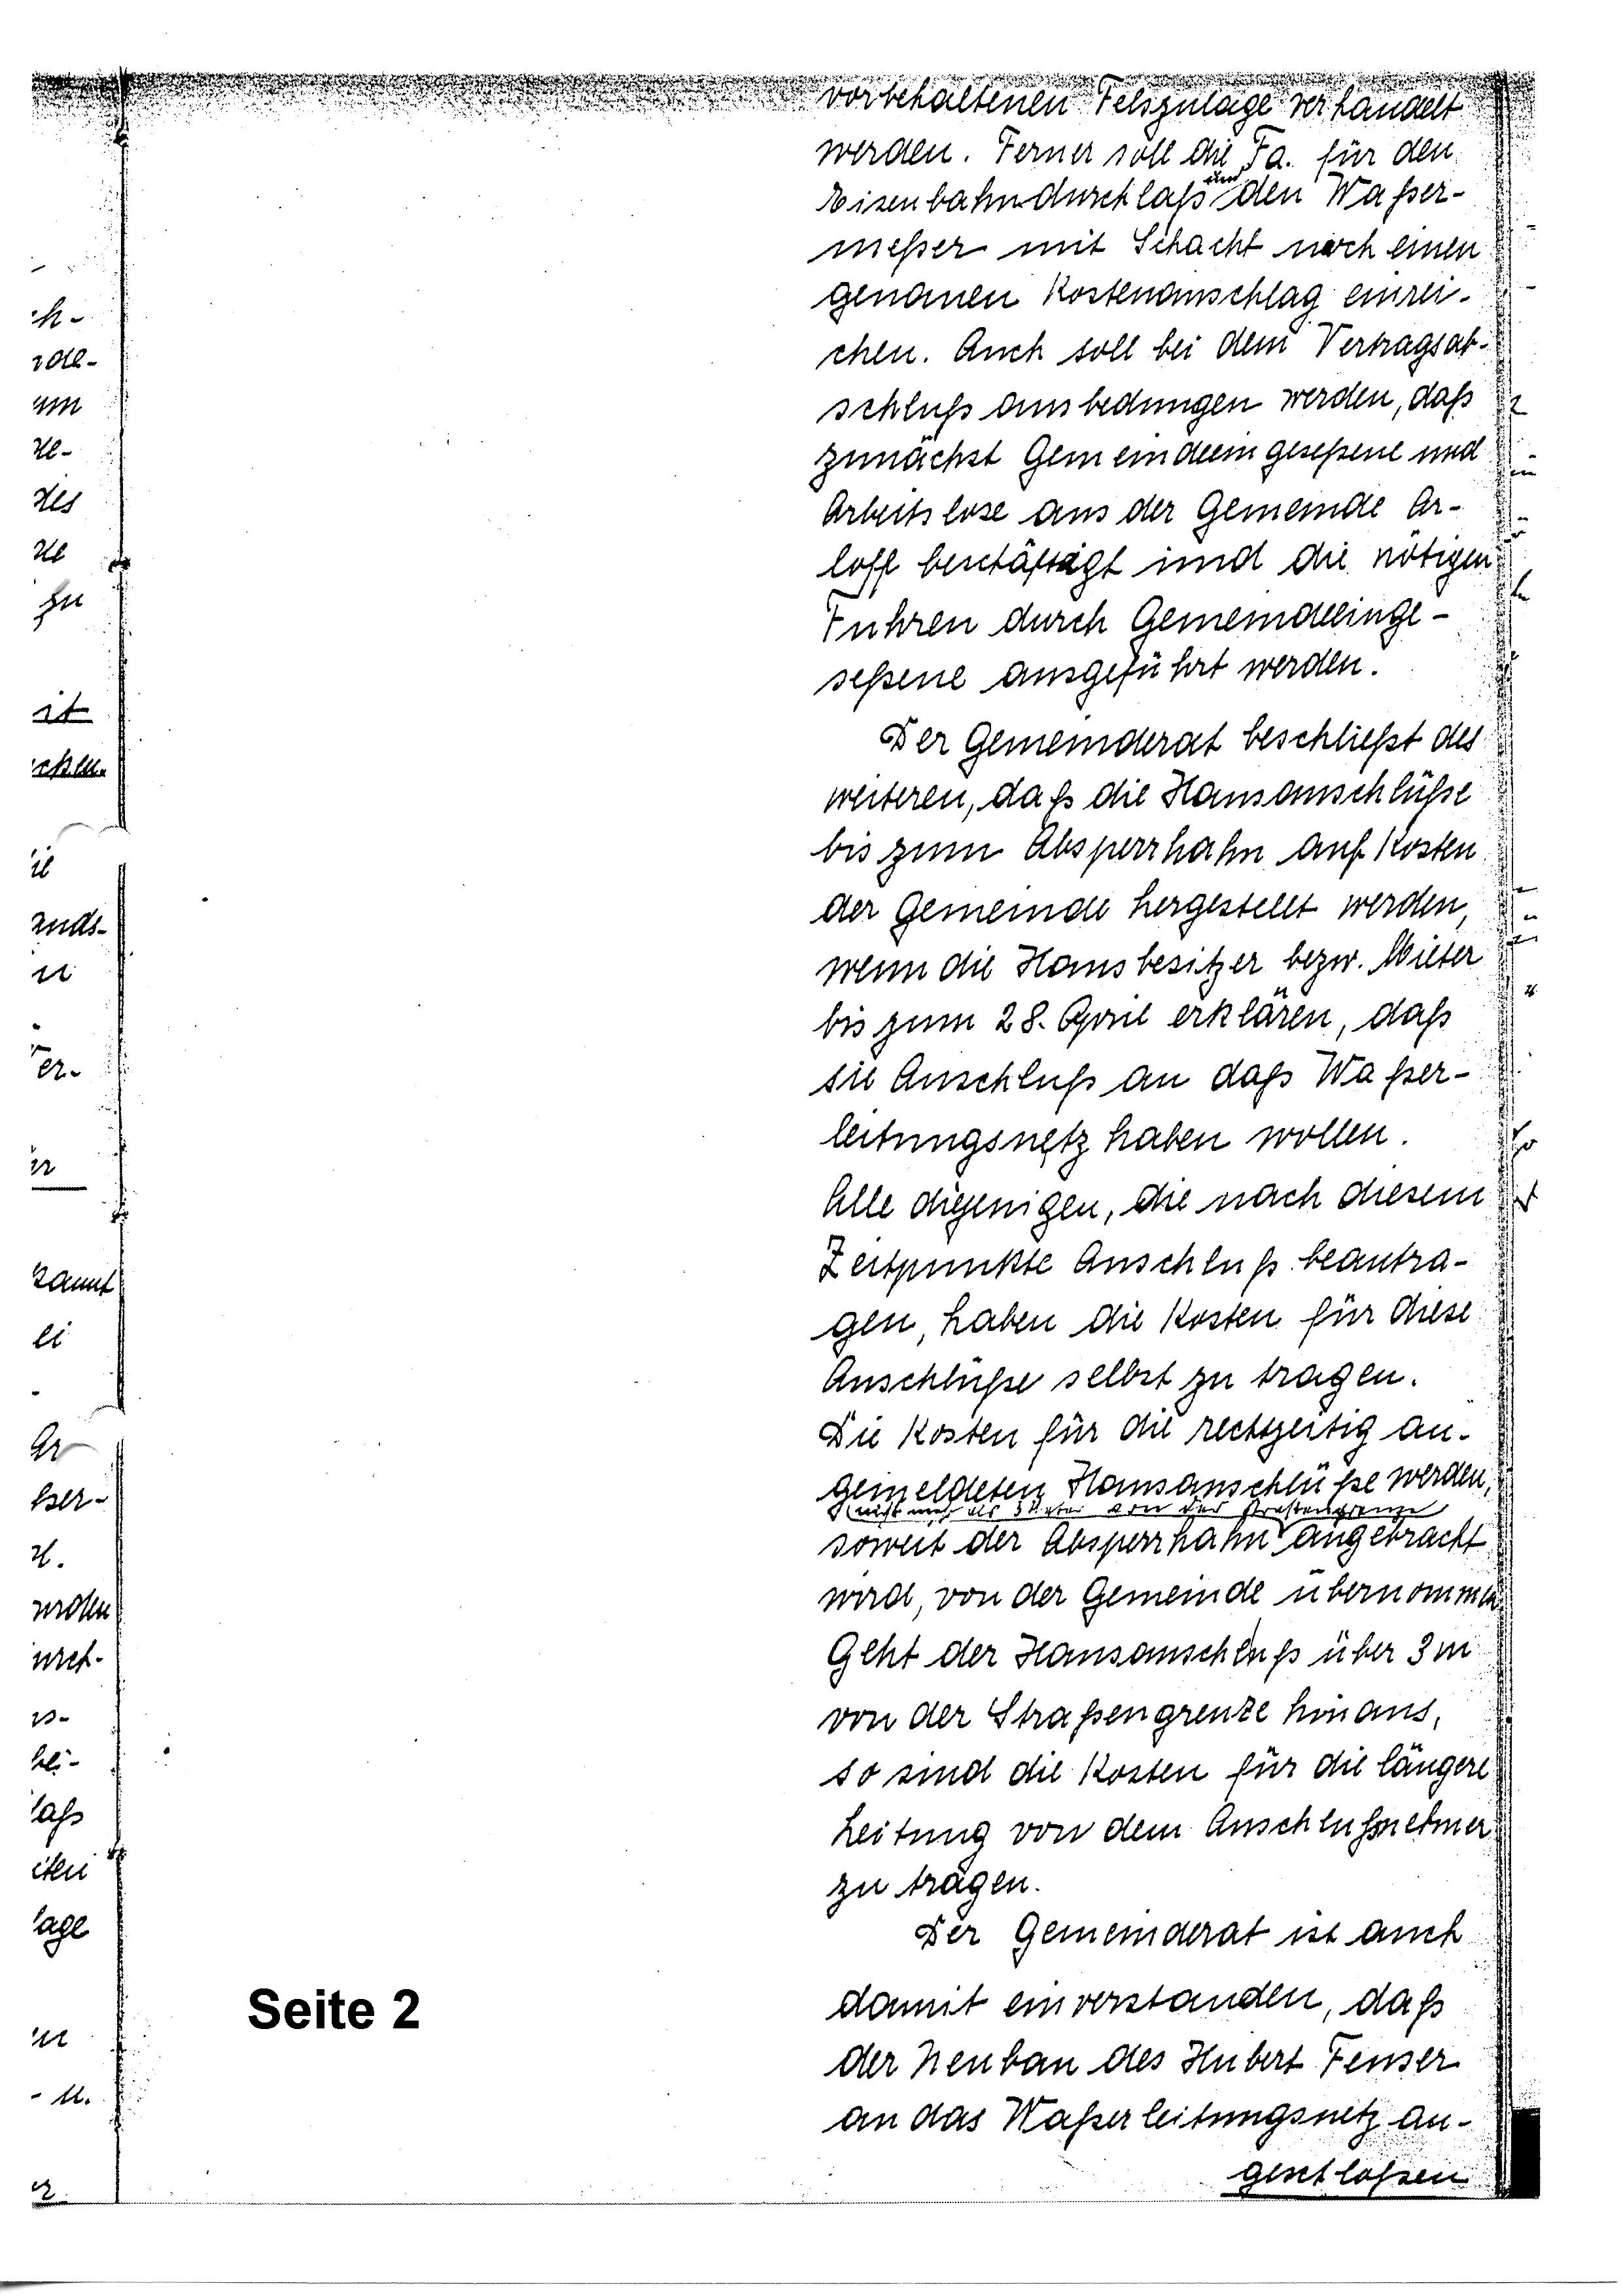 vorbehaltenen Felszulage verhandelt
werden. Ferner soll die Fa. für den
und
Eisenbahndurchlaß den Waßer-
meßer mit Schacht noch einen
genauen Kostenanschlag einrei-
chen. Auch soll bei dem Vertragsab-
schluß ausbedungen werden, daß
zunächst Gemeindeeingeseßene und
Arbeitslose aus der Gemeinde Ar-
loff beschäftigt und die nötigen
Fuhren durch Gemeindeeinge-
seßene ausgeführt werden.
Der Gemeinderat beschließt des
weiteren, daß die Hausanschlüße
bis zum Absperrhahn auf Kosten
der Gemeinde hergestellt werden,
wenn die Hausbesitzer bezw. Mieter
bis zum 28. April erklären, daß
sie Anschluß an daß Waßer-
leitungsnetz haben wollen.
Alle diejenigen, die nach diesem
Zeitpunkte Anschluß beantra-
gen, haben die Kosten für diese
Anschlüße selbst zu tragen.
Die Kosten für die rechtzeitig an-
gemeldeten Hausanschlüße werden,
(nicht mehr als 3 Meter von der Straßengrenze
soweit der Absperrhahn angebracht
wird, von der Gemeinde übernommen
Geht der Hausanschluß über 3 m
von der Straßengrenze hinaus,
so sind die Kosten für die längere
Leitung von dem Anschlußnehmer
zu tragen.
Der Gemeinderat ist auch
damit einverstanden, daß
der Neubau des Hubert Fenser
an das Waßerleitungsnetz an-
geschloßen
Seite 2